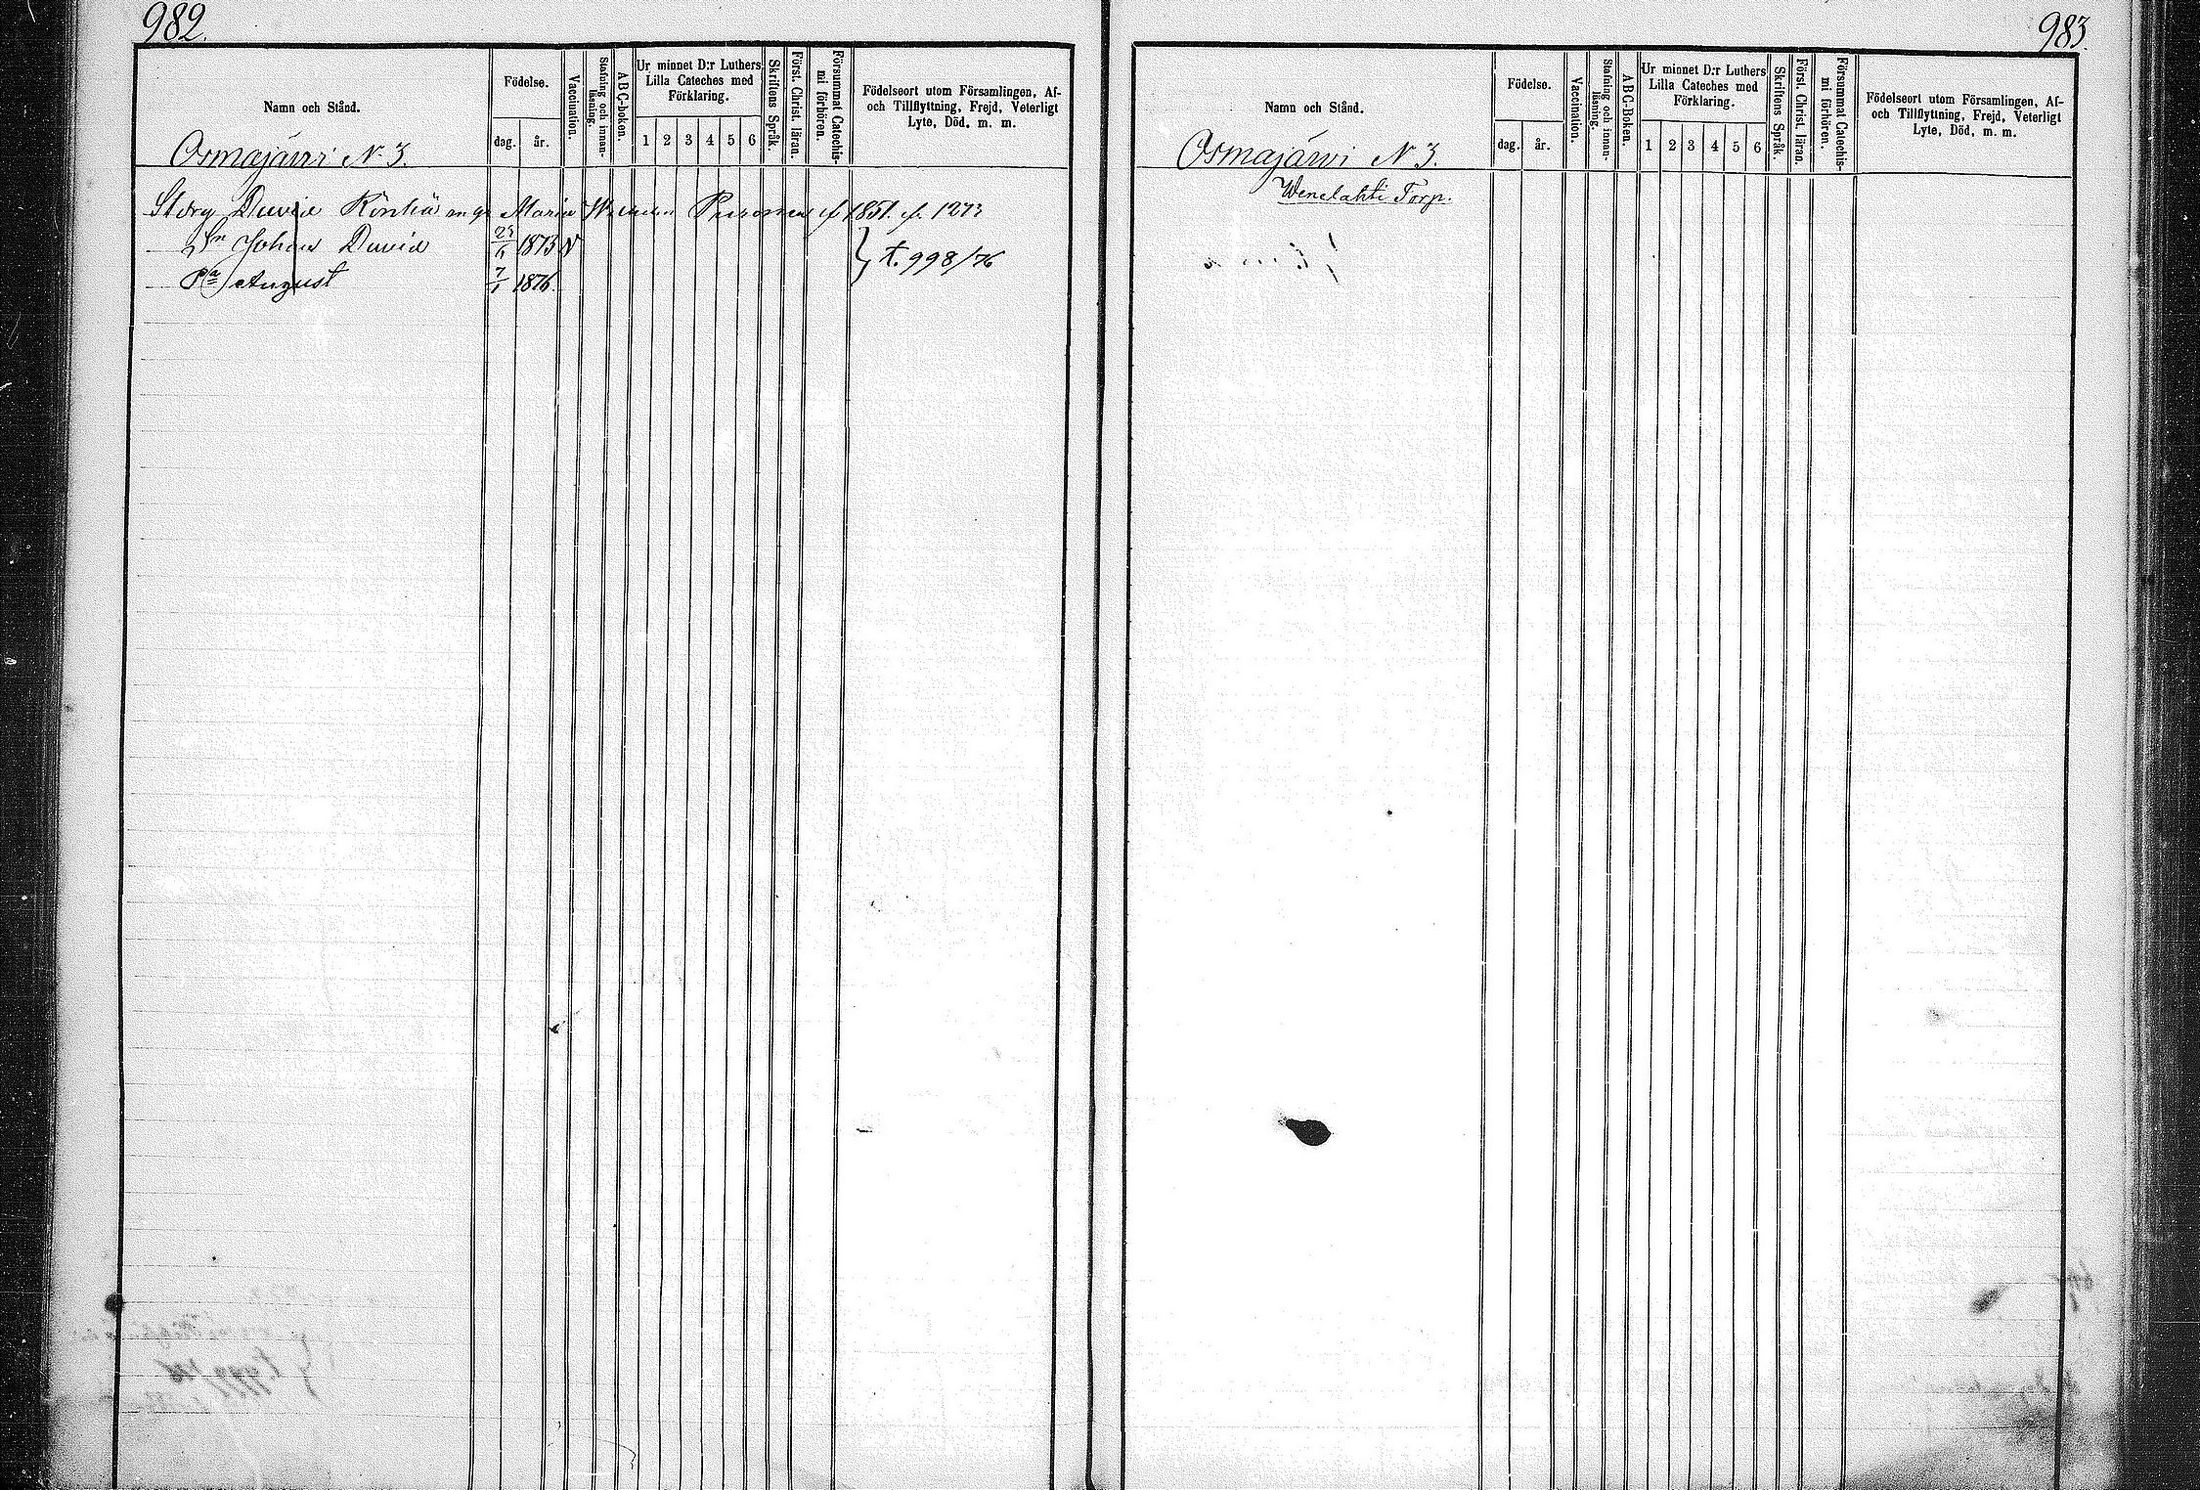 982.
Namn och Stånd.
Födelse.
dag. år.
Vaccination.
Stafning och innan-läsning.
ABC-boken.
Ur minnet D:r Luthers
Lilla Cateches med
Förklaring.
1 2 3 4 5 6
Skriftens Språk.
Först. Christ. läran.
Försummat Catechis-
mi förhören.
Födelseort utom Församlingen, Af-
och Tillflyttning, Frejd, Veterligt
Lyte, Död, m. m.
Osmajärvi N. 3.
David Maria 1851.
Sn Johan David 1873
t. 998/76
August 7/1 1876.
983.
Namn och Stånd.
Födelse.
dag. år.
Vaccination.
Stafning och innan-läsning.
ABC-Boken.
Ur minnet D:r Luthers
Lilla Cateches med
Förklaring.
1 2 3 4 5 6
Skriftens Språk.
Först. Christ. läran.
Försummat Catechis-
mi förhören.
Födelseort utom Församlingen, Af-
och Tillflyttning, Frejd, Veterligt
Lyte, Död, m. m.
Osmajärvi N 3.
Wenelahti Torp.